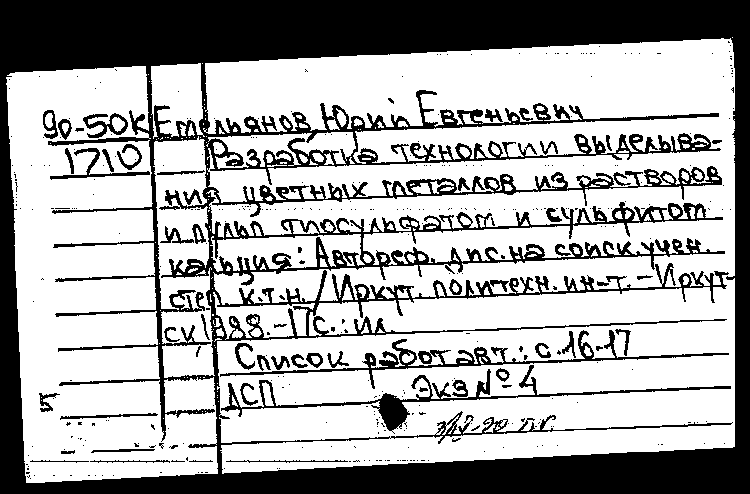 до-50К Емельянов, Юрий Евгеньевич
1710 Разработка технологии выделыва-
ния цветных металлов из растворов
и пульп тиосульфатом и сульфитом
кальция: Автореф. дис. на соиск. учен.
степ. к.т.н. / Иркут. политехн. ин-т. - Иркут-
ск, 1988. - 17с.: ил.
Список работ авт.: с. 16-17
5 ДСП Экз № 4